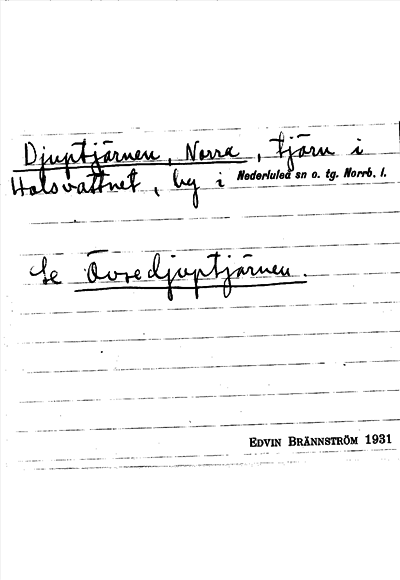 Djuptjärnen, Norra, tjärn i
Holsvattnet, by i Nederluleå sn o. tg. Norrb. l.
Se Övredjuptjärnen.
EDVIN BRÄNNSTRÖM 1931